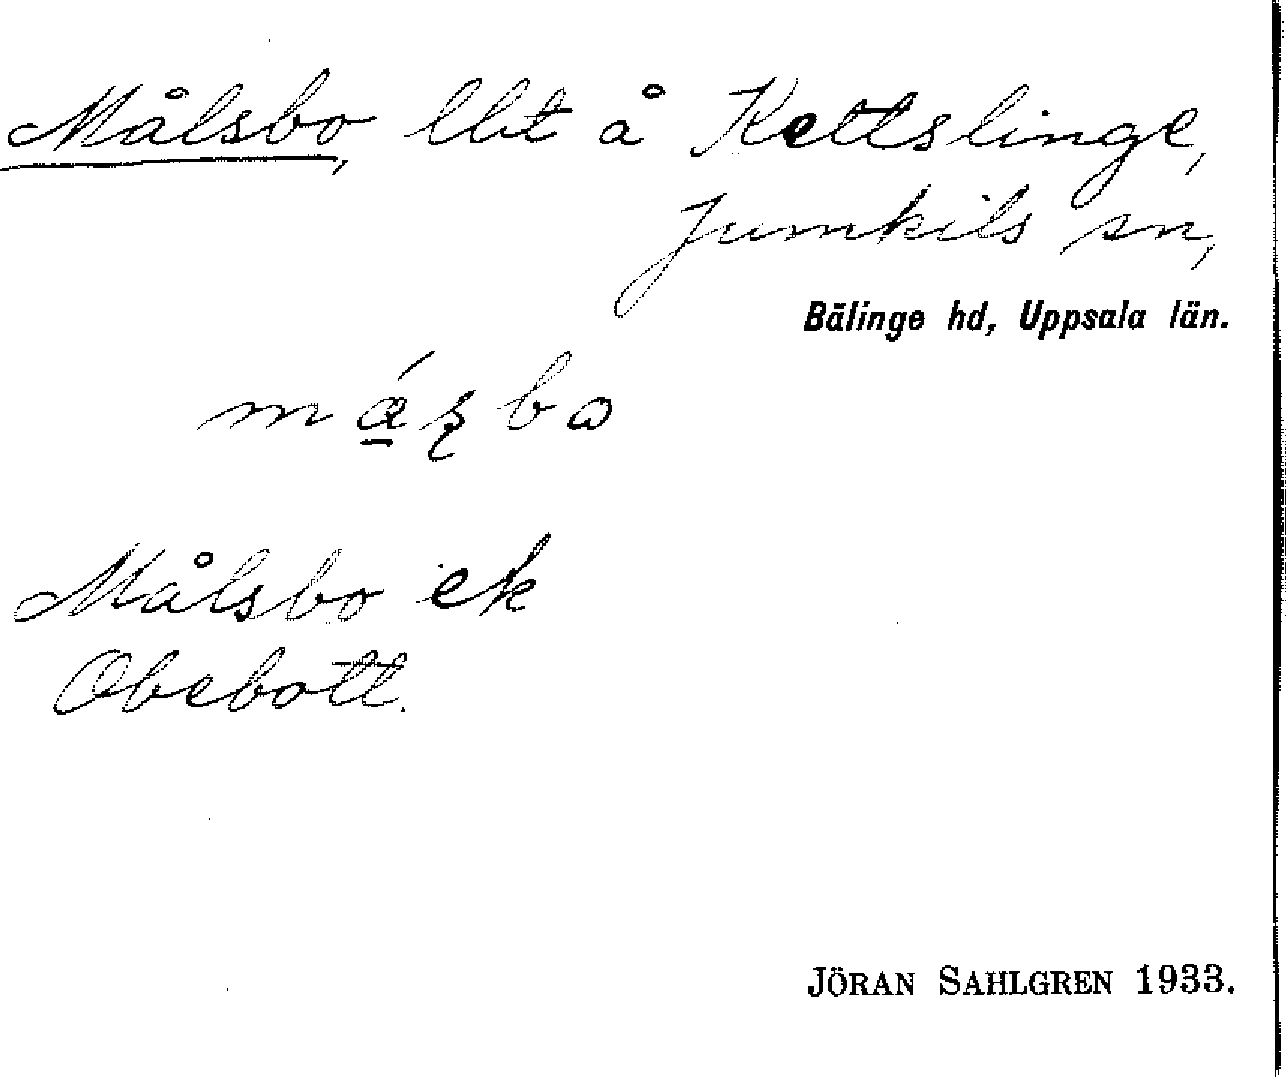 Målsbo, lht å Kettslinge,
Jumkils sn,
Bälinge hd, Uppsala län.
Målsbo ek
Obebott.
JÖRAN SAHLGREN 1933.